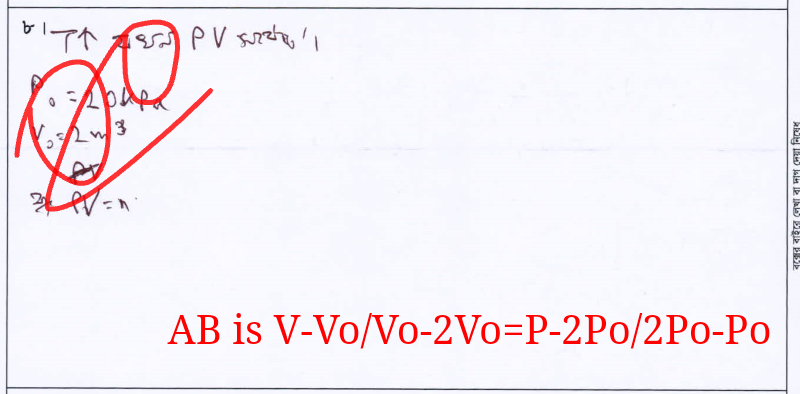 ৮। T↑ যখন PV সর্বোচ্চ।
P₀ = 20kPa
V₀ = 2m³
PV = n
AB is V-Vo/Vo-2Vo=P-2Po/2Po-Po
বক্সের বাইরে লেখা বা দাগ দেয়া নিষেধ